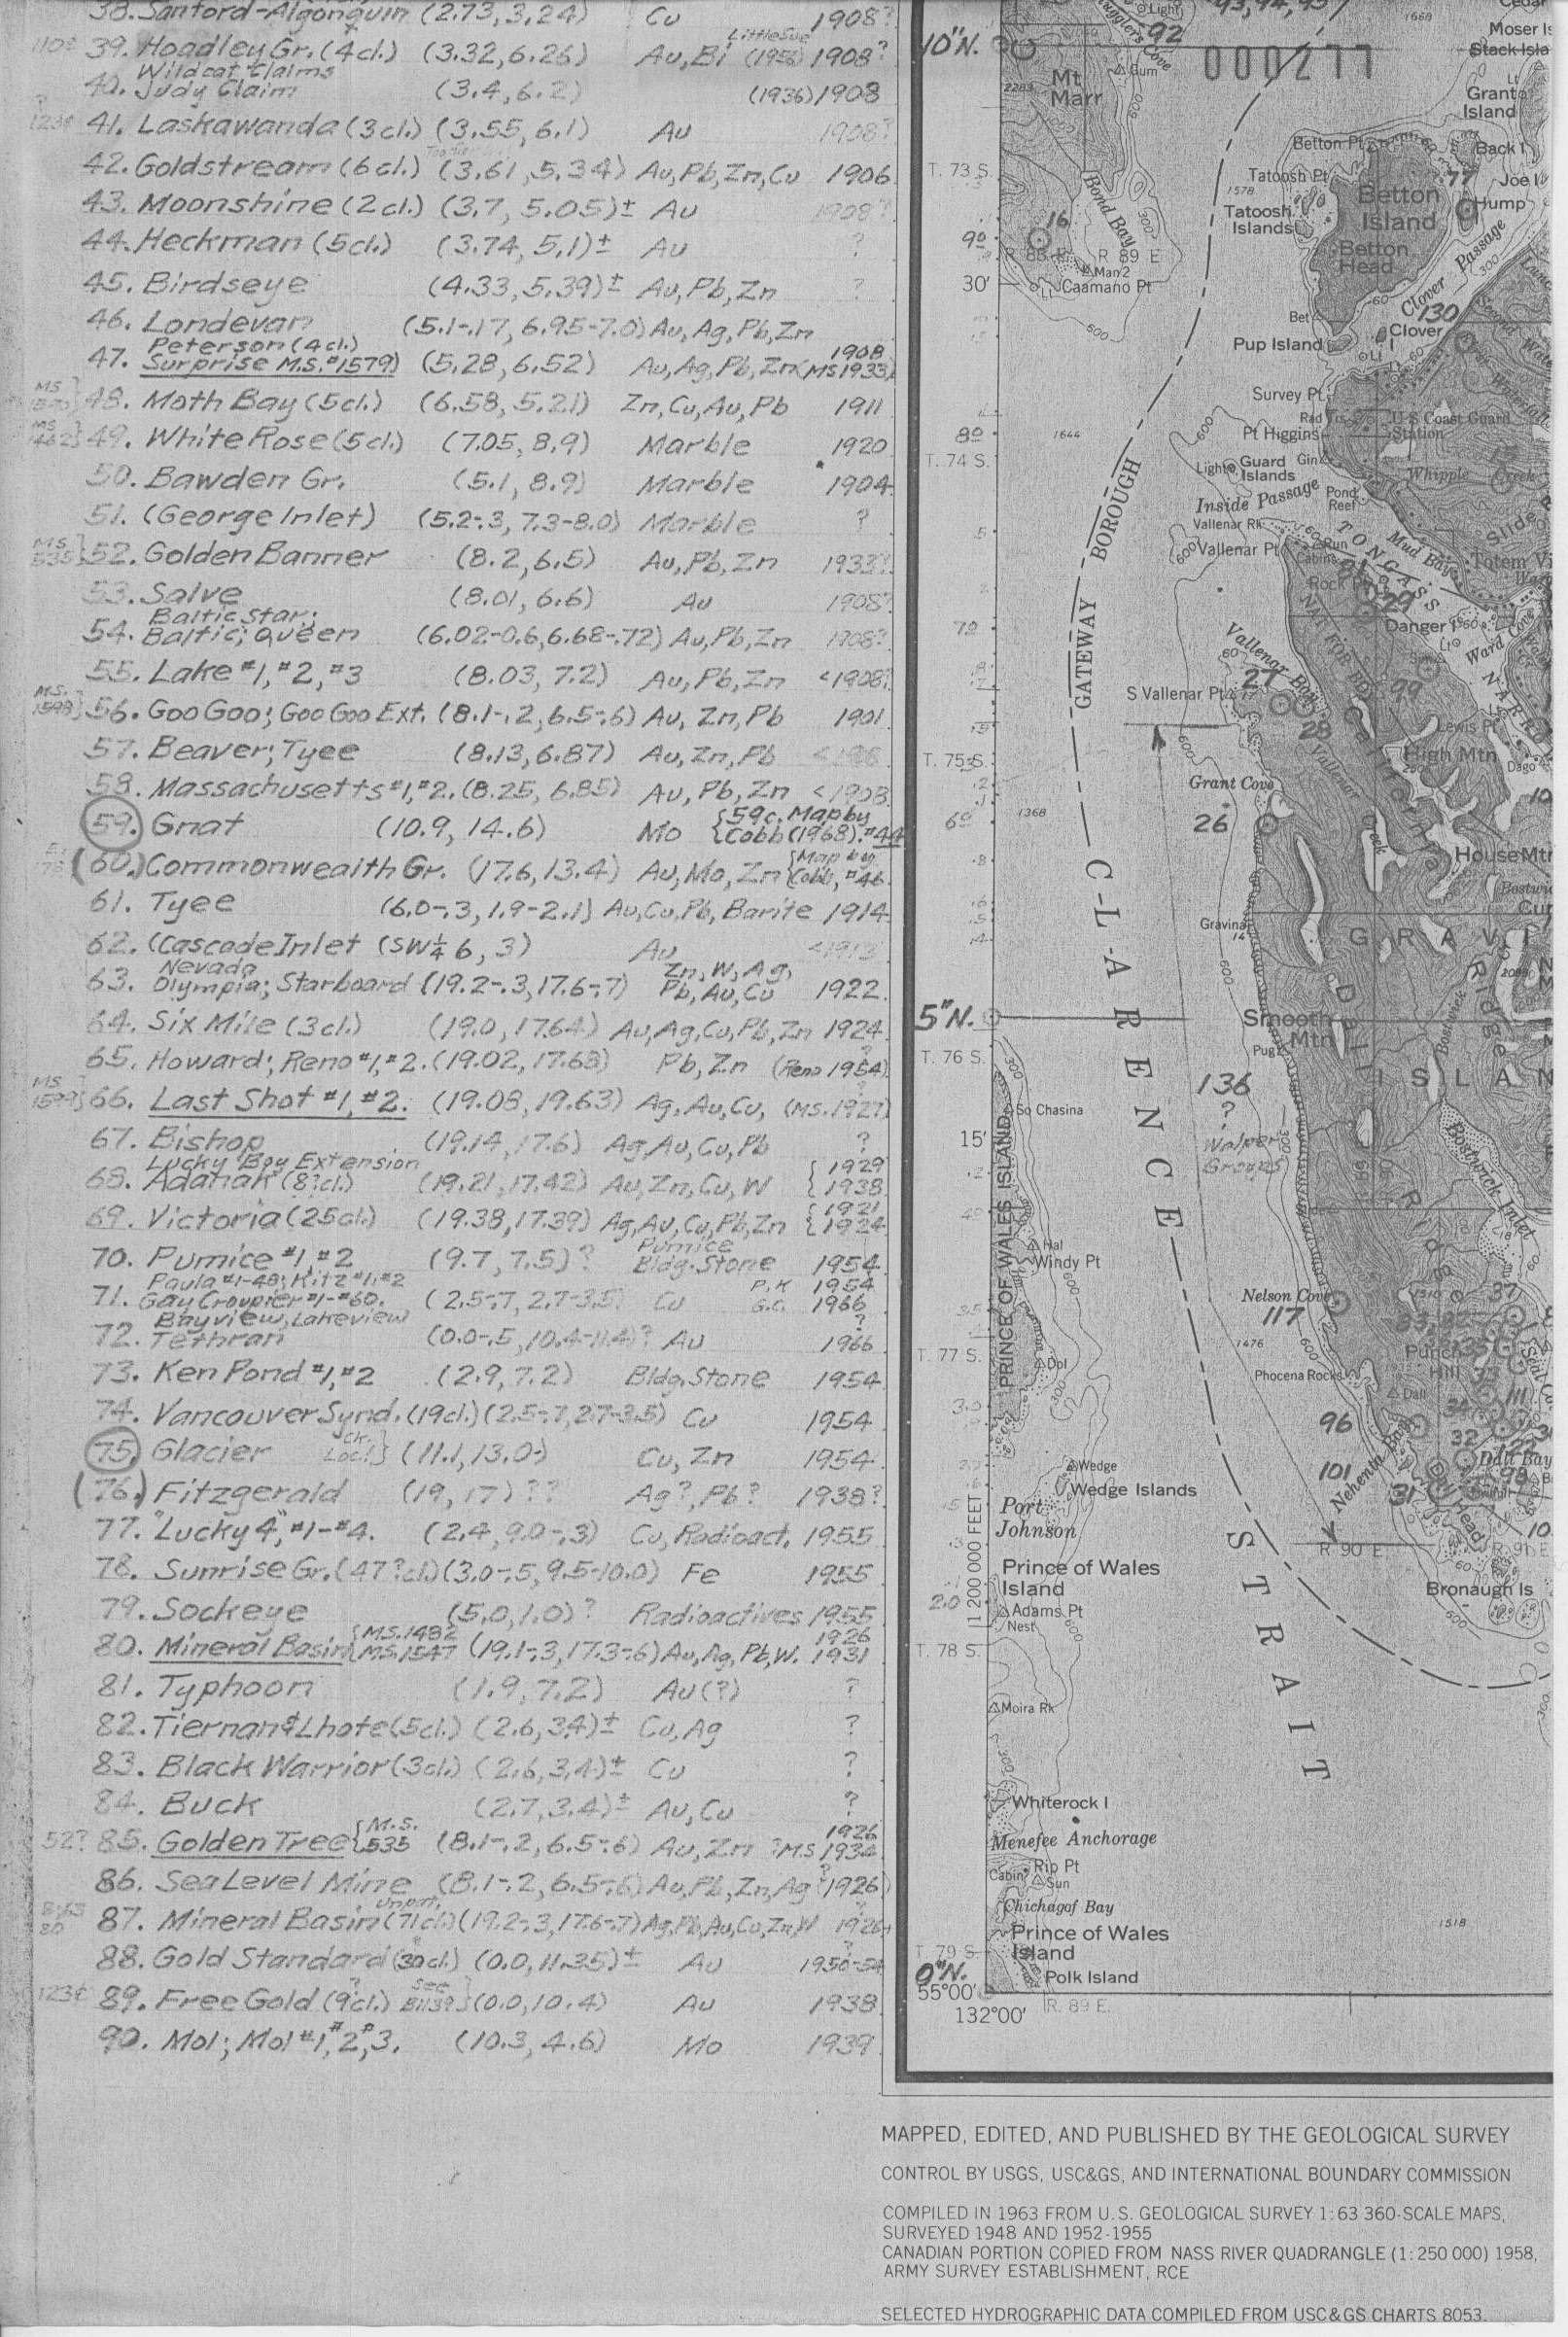 38. Sanford-Algonquin (2.73, 3.24) Cu 1908?
39. Hoadley Gr. (4cl.) (3.32, 6.26) Au, Bi Little Sue (1956) 1908?
Wildcat Claims
40. Judy Claim (3.4, 6.2) (1936) 1908
41. Laskawanda (3cl.) (3.55, 6.1) Au 1908?
42. Goldstream (6cl.) (3.61, 5.34) Au, Pb, Zn, Cu 1906
43. Moonshine (2cl.) (3.7, 5.05)± Au 1908?
44. Heckman (5cl.) (3.74, 5.1)± Au ?
45. Birdseye (4.33, 5.39)± Au, Pb, Zn ?
46. Londevan (5.1-.17, 6.95-7.0) Au, Ag, Pb, Zn
Peterson (4cl.) 1908
47. Surprise M.S. #1579) (5.28, 6.52) Au, Ag, Pb, Zn (MS 1933)
48. Moth Bay (5cl.) (6.58, 5.21) Zn, Cu, Au, Pb 1911
49. White Rose (5cl.) (7.05, 8.9) Marble 1920
50. Bawden Gr. (5.1, 8.9) Marble 1904
51. (George Inlet) (5.2-.3, 7.3-8.0) Marble ?
MS 535} 52. Golden Banner (8.2, 6.5) Au, Pb, Zn 1933?
53. Salve (8.01, 6.6) Au 1908?
Baltic Star;
54. Baltic; Queen (6.02-0.6, 6.68-.72) Au, Pb, Zn 1908?
55. Lake #1, #2, #3 (8.03, 7.2) Au, Pb, Zn <1908?
MS. 1598} 56. Goo Goo; Goo Goo Ext. (8.1-.2, 6.5-.6) Au, Zn, Pb 1901
57. Beaver; Tyee (8.13, 6.87) Au, Zn, Pb
58. Massachusetts #1, #2. (8.25, 6.85) Au, Pb, Zn <1908
59. Gnat (10.9, 14.6) Mo {59c. Map by Cobb (1968). #44
(60.) Commonwealth Gr. (17.6, 13.4) Au, Mo, Zn {Map by Cobb, #46
61. Tyee (6.0-.3, 1.9-2.1) Au, Cu, Pb, Barite 1914
62. (Cascade Inlet (SW¼ 6, 3) Au <1913
Nevada Zn, W, Ag,
63. Olympia; Starboard (19.2-.3, 17.6-.7) Pb, Au, Cu 1922
64. Six Mile (3cl.) (19.0, 17.64) Au, Ag, Cu, Pb, Zn 1924
65. Howard; Reno #1, #2. (19.02, 17.68) Pb, Zn (Reno 1954)
MS 1599} 66. Last Shot #1, #2. (19.08, 19.63) Ag, Au, Cu, (MS. 1927)
67. Bishop (19.14, 17.6) Ag, Au, Cu, Pb ?
Lucky Boy Extension {1929
68. Adanak (8?cl.) (19.21, 17.42) Au, Zn, Cu, W {1938
69. Victoria (25cl.) (19.38, 17.39) Ag, Au, Cu, Pb, Zn {1921 1924
Pumice
70. Pumice #1, #2 (9.7, 7.5)? Bldg. Stone 1954
Paula #1-48; Kitz #1, #2 P.K 1954
71. Gay Croupier #1-#60. (2.5-.7, 2.7-3.5) Cu G.C. 1966
Bayview, Lakeview ?
72. Tethran (0.0-.5, 10.4-11.4)? Au 1966
73. Ken Pond #1, #2 (2.9, 7.2) Bldg. Stone 1954
74. Vancouver Synd. (19cl.) (2.5-.7, 2.7-3.5) Cu 1954
75. Glacier Ck. Loc.} (11.1, 13.0-) Cu, Zn 1954
(76.) Fitzgerald (19, 17)?? Ag?, Pb? 1938?
77. "Lucky 4," #1-#4. (2.4, 9.0-.3) Cu, Radioact. 1955
78. Sunrise Gr. (47?cl.) (3.0-.5, 9.5-10.0) Fe 1955
79. Sockeye (5.0, 1.0)? Radioactives 1955
80. Mineral Basin {M.S. 1482 M.S. 1547 (19.1-.3, 17.3-.6) Au, Ag, Pb, W. 1926 1931
81. Typhoon (1.9, 7.2) Au (?) ?
82. Tiernan & Lhote (5cl.) (2.6, 3.4)± Cu, Ag ?
83. Black Warrior (3cl.) (2.6, 3.4)± Cu ?
84. Buck (2.7, 3.4)± Au, Cu ?
52? 85. Golden Tree {M.S. 535 (8.1-.2, 6.5-.6) Au, Zn 1926 ?MS 1934
86. Sea Level Mine (8.1-.2, 6.5-.6) Au, Pb, Zn, Ag (1926)
87. Mineral Basin Unpat. (71cl.) (19.2-.3, 17.6-.7) Ag, Pb, Au, Cu, Zn, W 1926
88. Gold Standard (30cl.) (0.0, 11.35)± Au 1950-54
89. Free Gold (9cl.) See B1139} (0.0, 10.4) Au 1938
90. Mol; Mol #1, #2, #3. (10.3, 4.6) Mo 1939
10"N.
000277
92
93, 94, 95
Light
1668
Cedar
Moser Is
Stack Isla
Grant Island
Mt Marr
Gum
T. 73 S.
Betton Pt
Back I
Tatoosh Pt
77
Joe I
1578
Betton Island
Hump
Tatoosh Islands
Bond Bay
16
9º
Betton Head
R 89 E
Man 2
Clover Passage
30'
Caamano Pt
Bet
130
Clover I
Pup Island
Survey Pt
8º
1644
Pt Higgins
U S Coast Guard Station
T. 74 S.
Light
Guard Islands
Gin
Whipple Creek
Inside Passage
Pond Reef
Vallenar Rk
TONGASS
Mud Bay
Slide
Vallenar Pt
Run
Cabins
Totem
Rock Pt
29
7º
Danger I
Ward Cove
Vallenar Bay
27
99
S Vallenar Pt
28
Lewis Pt
High Mtn
T. 75 S.
Dago
Grant Cove
1368
6º
26
House Mtn
Gravina
GATEWAY BOROUGH
GRAVI
5"N.
Smooth Mtn
Bostwick
Ridge
Pug
T. 76 S.
ISLAN
136
?
Walper Groups
So Chasina
15'
Bostwick Inlet
PRINCE OF WALES ISLAND
Hal
Windy Pt
Nelson Cove
117
37
1476
T. 77 S.
Dol
Punch Hill
Phocena Rocks
Dall
111
96
32
Nehenta Bay
Dall Bay
Wedge
101
31
98
Wedge Islands
Port Johnson
CLARENCE STRAIT
R 90 E
R 91 E
Prince of Wales Island
Bronaugh Is
1 200 000 FEET
2.0
Adams Pt
Nest
T. 78 S.
Moira Rk
Whiterock I
Menefee Anchorage
Rip Pt
Cabin
Sun
Chichagof Bay
1518
Prince of Wales Island
T. 79 S
0"N.
Polk Island
55°00'
132°00'
R. 89 E.
MAPPED, EDITED, AND PUBLISHED BY THE GEOLOGICAL SURVEY
CONTROL BY USGS, USC&GS, AND INTERNATIONAL BOUNDARY COMMISSION
COMPILED IN 1963 FROM U.S. GEOLOGICAL SURVEY 1:63 360-SCALE MAPS,
SURVEYED 1948 AND 1952-1955
CANADIAN PORTION COPIED FROM NASS RIVER QUADRANGLE (1:250 000) 1958,
ARMY SURVEY ESTABLISHMENT, RCE
SELECTED HYDROGRAPHIC DATA COMPILED FROM USC&GS CHARTS 8053,